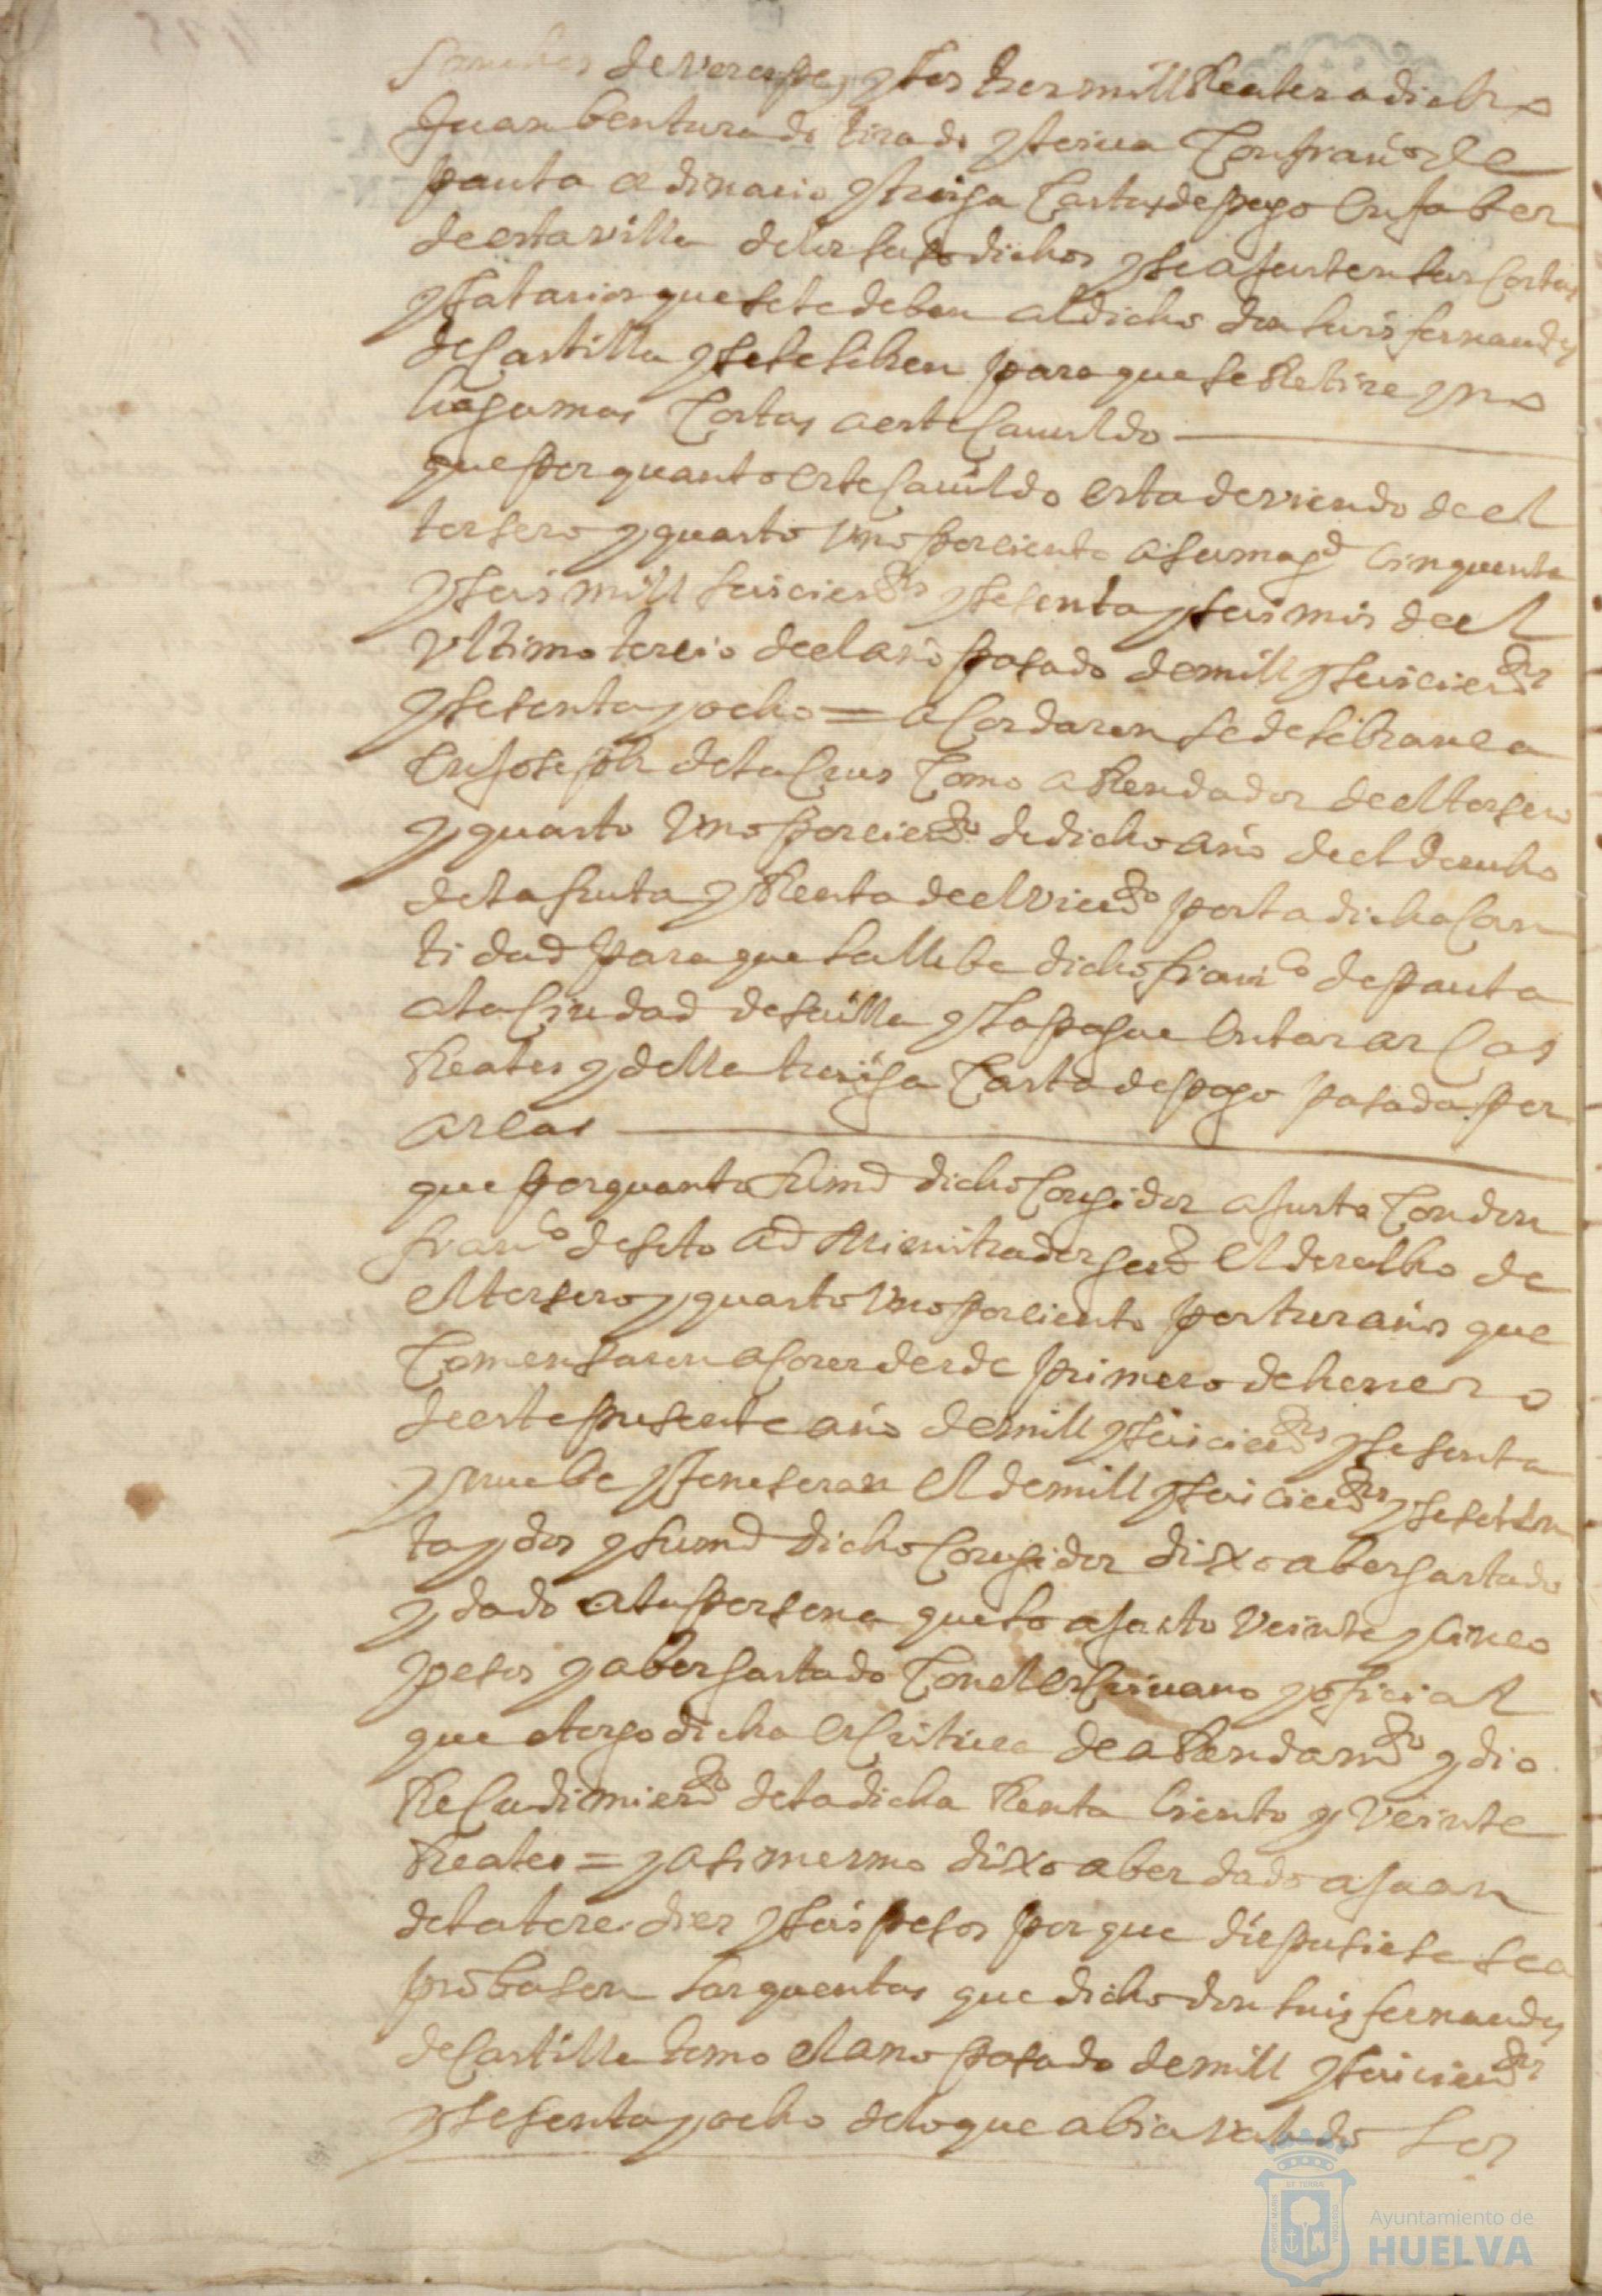 Sanches de veraspe, y los tres mill Reales a dicho
Juan bentura de tirado y seiua Con franco de
pauta ordinario y traiga Cartas de pago en faber
de esta villa de los suso dichos y se ajusten sus Costas
y salarios que se le deben al dicho don luis fernandes
de Castilla y se le libren para que se Retire y no
haga mas Costas a este Cauildo
que por quanto este Cauildo esta deviendo de el
tersero y quarto Uno por ciento a su magd cinquenta
y seis mill seiscientos y sesenta y seis mrs de el
Ultimo tercio de el año pasado de mill y seiscientos
y sesenta y ocho = aCordaron se de libransa
en Joseph de la Crus Como aRendador de el tersero
y quarto Uno por ciento de dicho año de el derecho
de la fruta y Renta de el viento por la dicha Can
tidad para que la llebe dicho franco de pauta
a la Ciudad de seuilla y la pague en las arCas
Reales y de ella traiga Carta de pago pasada por
arcas
que por quanto su md dicho Coregidor ajusto Con don
franco de soto administrador genl el derecho de
el tersero y quarto Uno por ciento por tres años que
Comensaron a Corer desde primero de henero
de este presente año de mill y seiscientos y sesenta
y nuebe y feneseran el de mill y seiscientos y seten
ta y dos y su md dicho Coregidor dixo aber gastado
y dado a la persona que lo ajusto Veinte y Cinco
pesos y aber gastado Con el esCriuano y oficial
que otorgo dicha esCritura de aRendamto y dio
ReCudimiento de la dicha Renta Ciento y Veinte
Reales = y asi mesmo dixo aber dado a Juan
de la tore dies y seis pesos por que dispusiese se a
probasen las quentas que dicho don luis fernandes
de Castilla tomo el ano pasado de mill y seiscientos
y sesenta y ocho de lo que abia valido Los
Ayuntamiento de
HUELVA